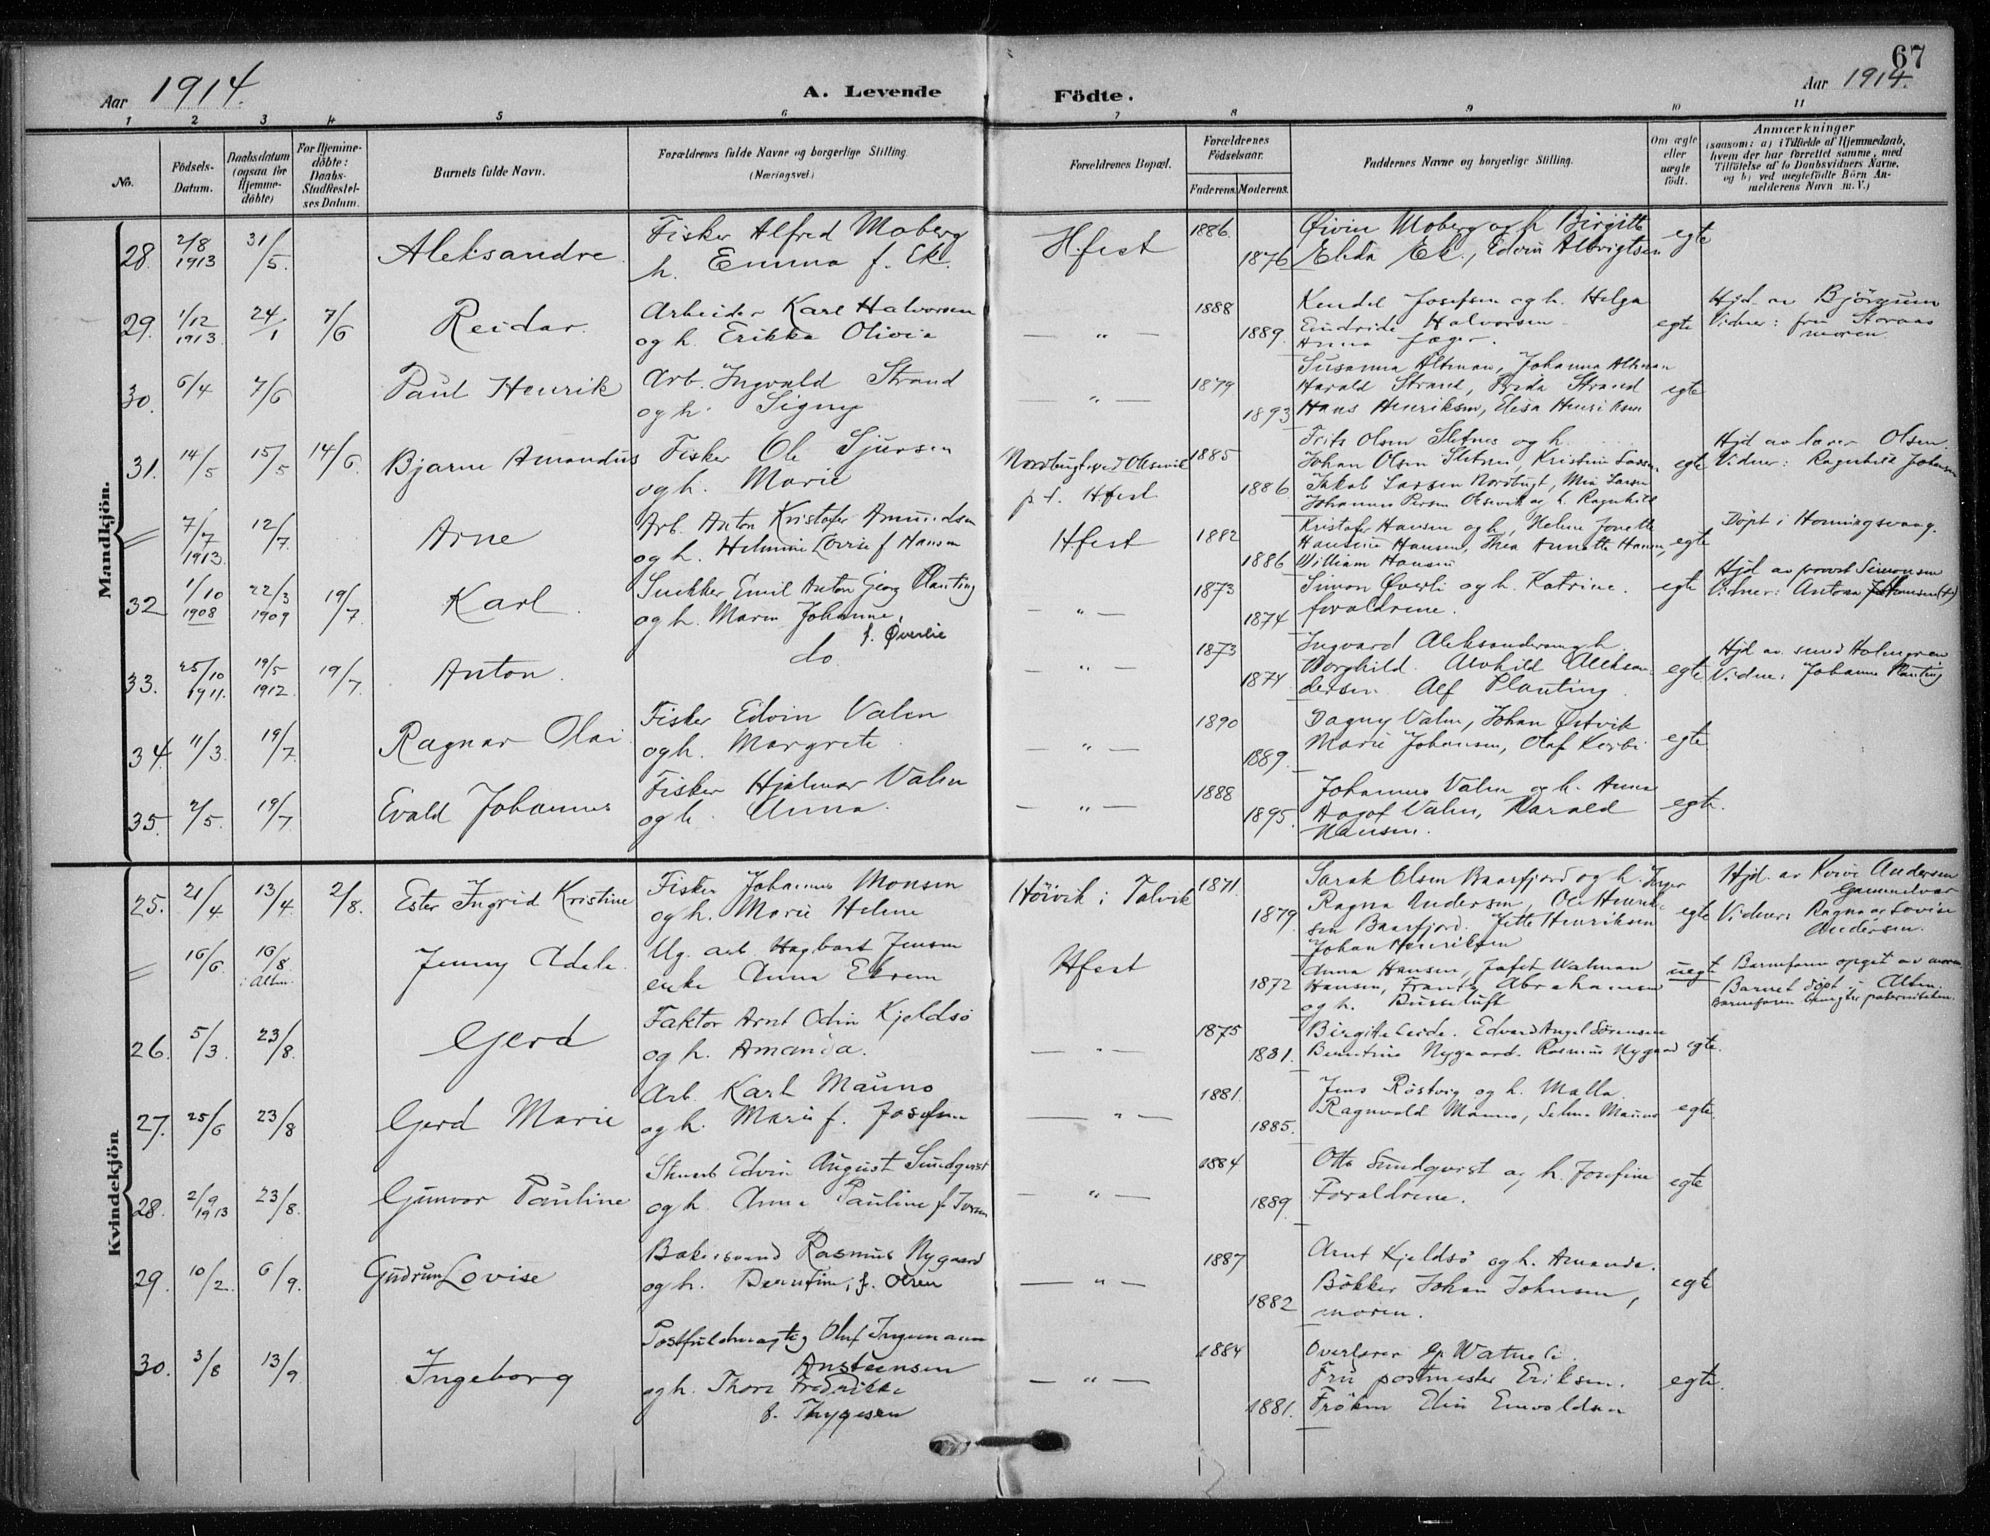 67
Aar 1914. A. Levende Födte. Aar 1914.
1 2 3 4 5 6 7 8 9 10 11
No. Födsels-Datum. Daabsdatum (ogsaa for Hjemmedöbte) For Hjemmedöbte: Daabs-Stadfæstelses Datum. Barnets fulde Navn. Forældrenes fulde Navne og borgerlige Stilling. (Næringsvei.) Forældrenes Bopæl. Forældrenes Födselsaar. Faderens. Moderens. Faddernes Navne og borgerlige Stilling. Om ægte eller uægte født. Anmærkninger (saasom: a) i Tilfælde af Hjemmedaab, hvem der har forrettet samme, med Tilföielse af to Daabsvidners Navne, og b) ved uægtefödte Börn Anmelderens Navn m. V.)
Mandkjön.
28. 2/8 1913 31/5. Aleksandre. Fisker Alfred Moberg
h. Emma f. Ek. Hfest 1886. 1876 Øivin Moberg og h. Birgitte
Elida Ek., Edvin Albrigtsen egte
29. 1/12 1913. 24/1 7/6 Reidar. Arbeider Karl Halvorsen
og h. Erikka Olivia — " — 1888 1889. Kendel Josefsen og h. Helga
Eindride Halvorsen
Anna Jæger. egte Hjd. av Björgum
Vidner: fru Storaas
moren
30. 6/4 7/6 Paul Henrik Arb. Ingvald Strand
og h. Signy — " — 1879 1893 Susanna Altman, Johanna Altman
Harald Strand, Frida Strand
Hans Henriksen, Elisa Henriksen egte
31. 14/5 15/5 14/6. Bjarne Amandus Fisker Ole Sjursen
og h. Marie Nordbugt ved Olsevik
p. t. Hfest 1885 1886. Frits Olsen Sletnes og h.
Johan Olsen Sletnes, Kristine Larsen
Jakob Larsen Nordbugt, Mia Larsen
Johannes Persen Olsevik og h. Ragnhild egte Hjd av lærer Olsen.
Vidner: Ragnhild Johansen
" 7/7 1913. 12/7. Arne Arb. Anton Kristofer Amundsen
og h. Helmine Lovise f. Hansen Hfest 1882 1886 Kristofer Hansen og h, Helene Jonette
Hansine Hansen, Thea Annette Hansen,
William Hansen egte Döpt i Honningsvaag.
32 1/10 1908 22/3 1909 19/7. Karl. Snekker Emil Anton Georg Planting
og h. Maren Johanne,
f. Øverlie — " — 1873 1874 Simon Øverli og h. Katrine.
forældrene. egte Hjd av provst Simonsen
Vidner: Antona Johansen (+)
33. 25/10 1911. 19/5 1912. 19/7. Anton. do — " — 1873 1874 Ingvard Aleksandersen og h.
Borghild. Alvhild Aleksan-
dersen. Alf Planting. egte Hjd av smed Holmgren
Vidner: Johanne Planting
34. 11/3. 19/7. Ragnar Olai Fisker Edvin Valen
og h. Margrete. — " — 1890 1889. Dagny Valen, Johan Østvik
Marie Johansen, Olaf Kerbi egte
35. 2/5. 19/7 Evald Johannes Fisker Hjalmar Valen
og h. Anna. — " — 1888 1895. Johannes Valen og h. Anna
Aagot Valen, Harald
Hansen. egte.
Kvindekjön
25. 21/4 13/4. 2/8. Ester Ingrid Kristine Fisker Johannes Monsen
og h. Marie Helene Höivik i Talvik 1871. 1879. Sarah Olsen Baarfjord og h. Jørger
Ragna Andersen, Ole Henrik-
sen Baarfjord. Jette Henriksen
Johan Henriksen egte Hjd. av Kvive Andersen
Gammelvær
Vidner: Ragna og Lovise
Andersen.
" 16/6. 16/8 i Alten. Jenny Adele. Ug. arb. Hagbart Jensen
enke Anna Ekrem Hfest 1872 Anna Hansen, Jafet Watman
Hansen, Frantz Abrahamsen
og h. Busseluft uegt Barnefaren opget av moren.
Barnet döpt i Alten.
Barnefaren benegter paterniteten.
26. 5/3. 23/8. Gerd Faktor Arnt Odin Kjeldsö
og h. Amanda. — " — 1875 1881. Birgite Eide. Edvard Angel Sørensen
Berentine Nygaard. Rasmus Nygaard egte.
27. 25/6 23/8 Gerd Marie Arb. Karl Mauno
og h. Marie f. Josefsen — " — 1881. 1885. Jens Röstvig og h. Malla.
Ragnvald Mauno, Selma Mauno egte
28. 2/9 1913 23/8. Gunvor Pauline Skred. Edvin August Sundqvist
og h. Anna Pauline f. Iversen — " — 1884 1889. Otto Sundqvist og h. Josefine
Forældrene. egte
29. 10/2. 6/9. Gudrun Lovise Bakersvend Rasmus Nygaard
og h. Berentine, f. Olsen — " — 1887 1882 Arnt Kjeldsö og h. Amanda.
Bökker Johan Johnsen,
moren. egte
30. 3/8 13/9 Ingeborg Postfuldmægtig Oluf Ingemann
Ansteensen
og h. Thora Fredrikke
f. Thygesen — " — 1884 1881. Overlærer Watne
Fru postmester Eriksen.
Fröken Elin Envoldsen egte.